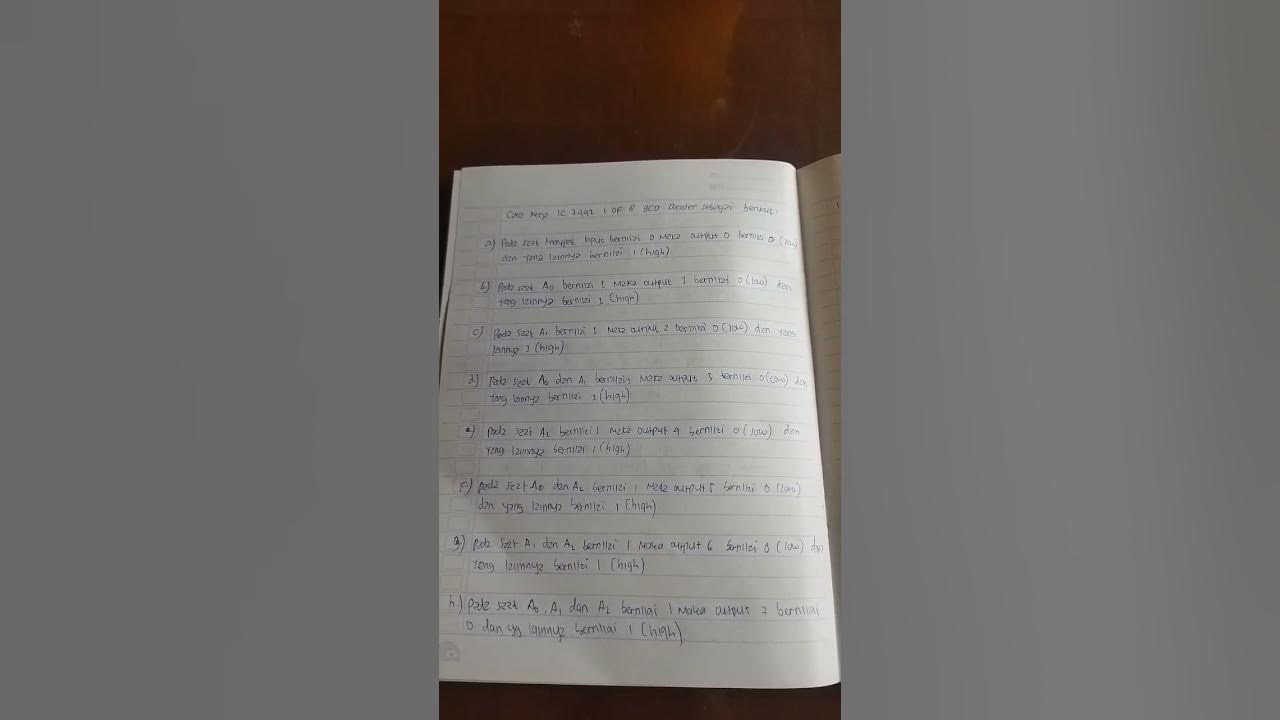 Cara kerja IC 7442 1 OF 8 BCD Decoder sebagai berikut:
a) Pada saat input bernilai 0 maka output 0 bernilai 0 (low)
dan yang lainnya bernilai 1 (high)
b) Pada saat A0 bernilai 1 maka output 1 bernilai 0 (low) dan
yang lainnya bernilai 1 (high)
c) Pada saat A1 bernilai 1 maka output 2 bernilai 0 (low) dan yang
lainnya 1 (high)
d) Pada saat A0 dan A1 bernilai, maka output 3 bernilai 0 (low) dan
yang lainnya bernilai 1 (high)
e) pada saat A2 bernilai 1 maka output 4 bernilai 0 (low) dan
yang lainnya bernilai 1 (high)
f) pada saat A0 dan A2 bernilai 1 maka output 5 bernilai 0 (low)
dan yang lainnya bernilai 1 (high)
g) pada saat A1 dan A2 bernilai 1 maka output 6 bernilai 0 (low) dan
yang lainnya bernilai 1 (high)
h) pada saat A0, A1 dan A2 bernilai 1 maka output 7 bernilai
0 dan yg lainnya bernilai 1 (high)